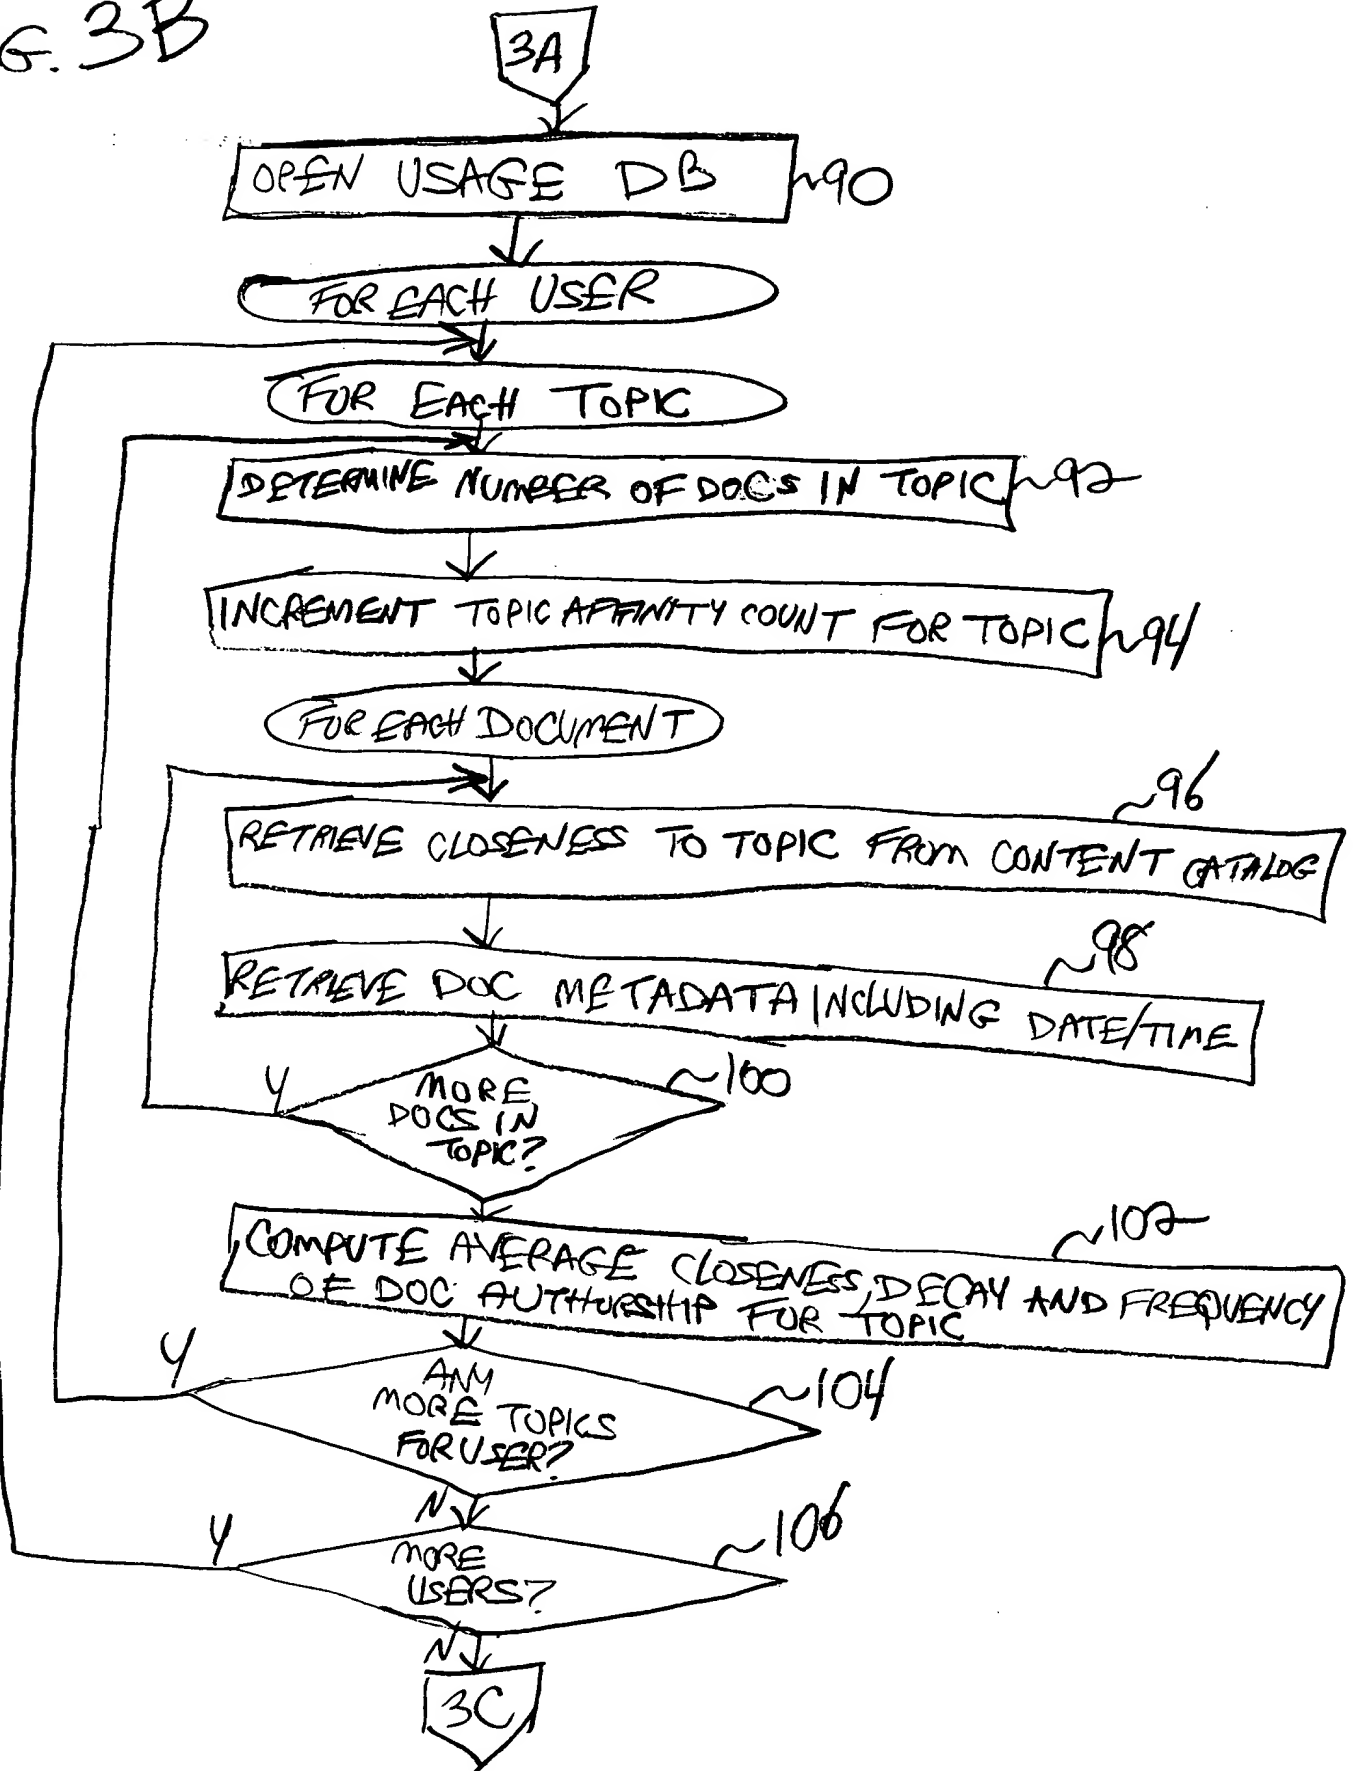 G. 3B
3A
OPEN USAGE DB
90
FOR EACH USER
FOR EACH TOPIC
DETERMINE NUMBER OF DOCS IN TOPIC
92
INCREMENT TOPIC AFFINITY COUNT FOR TOPIC
94
FOR EACH DOCUMENT
96
RETRIEVE CLOSENESS TO TOPIC FROM CONTENT CATALOG
98
RETRIEVE DOC METADATA INCLUDING DATE/TIME
100
Y
MORE
DOCS IN
TOPIC?
102
COMPUTE AVERAGE CLOSENESS, DECAY AND FREQUENCY
OF DOC AUTHORSHIP FOR TOPIC
Y
104
ANY
MORE TOPICS
FOR USER?
N
Y
106
MORE
USERS?
N
3C